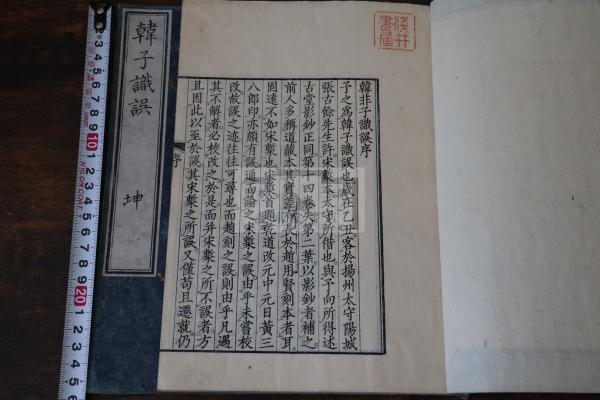 韓非子識誤序
予之爲韓子識誤也歲在乙丑客於揚州太守陽城
張古餘先生許宋槧本太守所借也與予向所得述
古堂影鈔正同第十四卷失第二葉以影鈔者補之
前人多稱道藏本其實差長於趙用賢刻本者耳
固遠不如宋槧也宋槧首題乾道改元中元日黃三
八郎印亦頗有誤通而論之宋槧之誤由乎未嘗校
改故誤之迹往往可尋也而趙刻之誤則由乎凡遇
其不解者必校改之於是而幷宋槧之所不誤者方
且因此以至於誤其宋槧之所誤又僅苟且遷就仍
序
韓子識誤
坤
淺井書屋
10
20